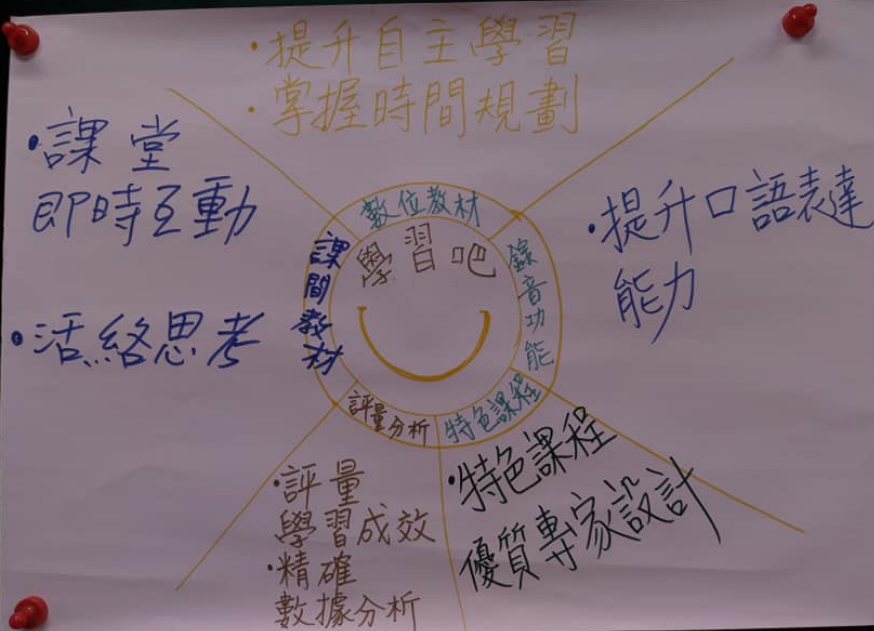 ·提升自主學習
·掌握時間規劃
·課堂
即時互動
·活絡思考
數位教材
學習吧
課間教材
錄音功能
評量分析
特色課程
·提升口語表達
能力
·評量
學習成效
·精確
數據分析
·特色課程
優質專家設計